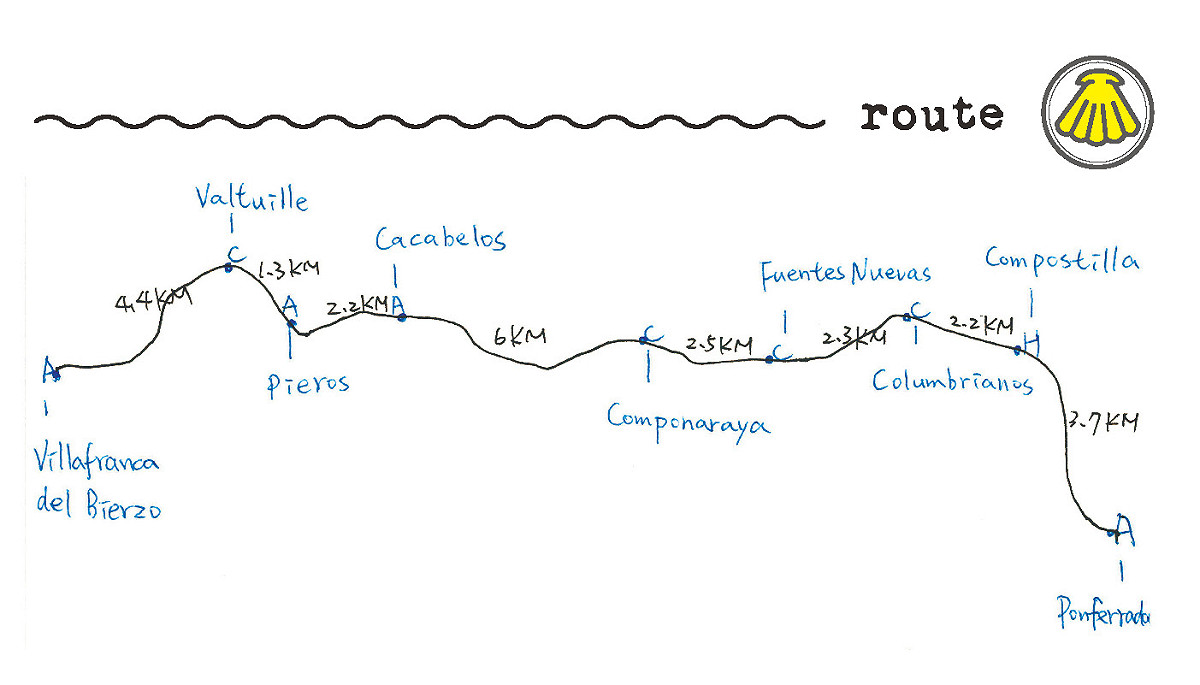 route
Valtuille
C
1.3KM
Cacabelos
4.4KM
A
2.2KM
A
Pieros
A
Villafranca
del Bierzo
6KM
C
Componaraya
2.5KM
FuentesNuevas
C
2.3KM
C
Columbrianos
2.2KM
Compostilla
H
3.7KM
A
Ponferrada